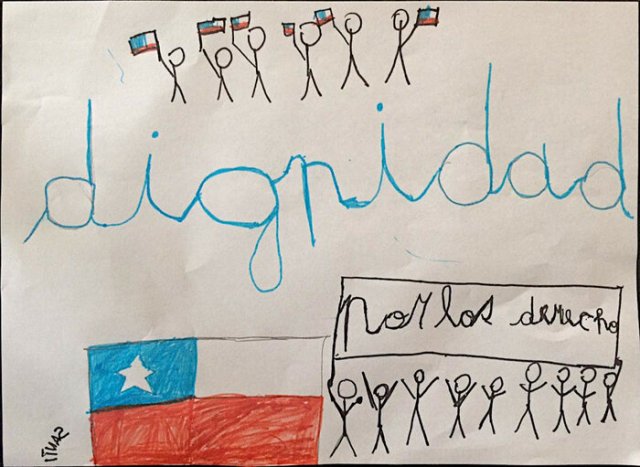 dignidad
por los derecho